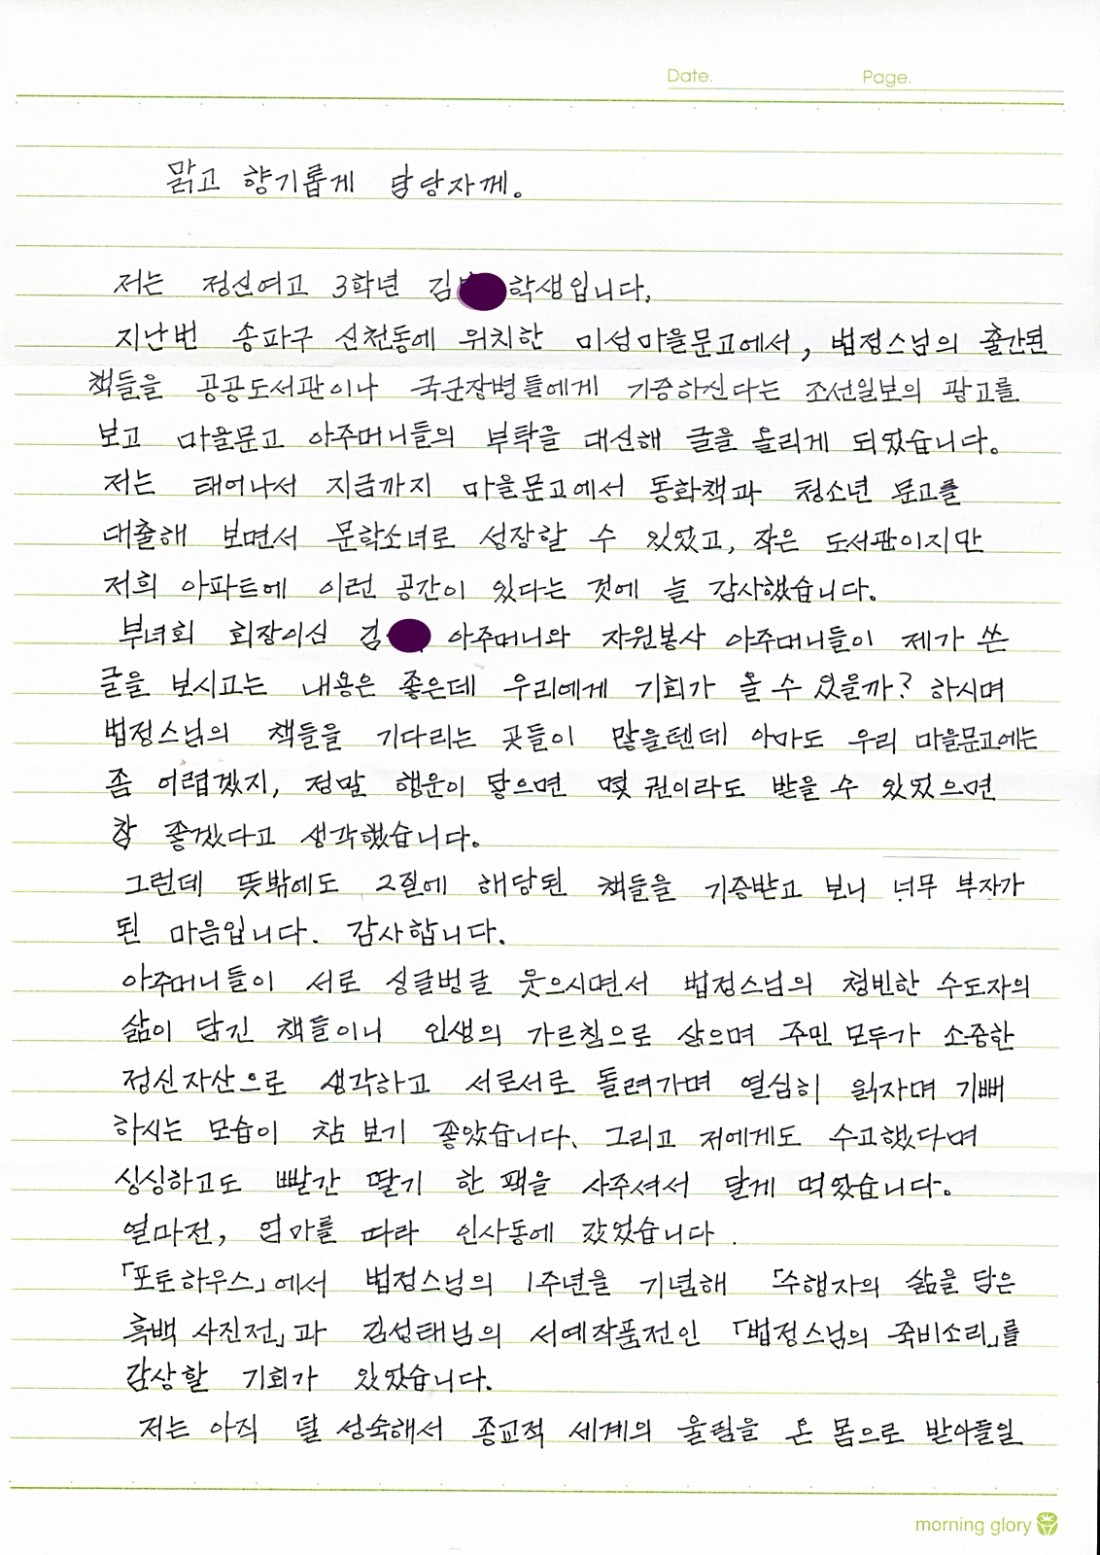 Date. Page.
맑고 향기롭게 담당자께。
저는 정신여고 3학년 김 학생입니다.
지난번 송파구 신천동에 위치한 미성마을문고에서, 법정스님의 출간된
책들을 공공도서관이나 국군장병들에게 기증하신다는 조선일보의 광고를
보고 마을문고 아주머니들의 부탁을 대신해 글을 올리게 되었습니다.
저는 태어나서 지금까지 마을문고에서 동화책과 청소년 문고를
대출해 보면서 문학소녀로 성장할 수 있었고, 작은 도서관이지만
저희 아파트에 이런 공간이 있다는 것에 늘 감사했습니다.
부녀회 회장이신 김 아주머니와 자원봉사 아주머니들이 제가 쓴
글을 보시고는 내용은 좋은데 우리에게 기회가 올 수 있을까? 하시며
법정스님의 책들을 기다리는 곳들이 많을텐데 아마도 우리 마을문고에는
좀 어렵겠지, 정말 행운이 닿으면 몇 권이라도 받을 수 있었으면
참 좋겠다고 생각했습니다.
그런데 뜻밖에도 2질에 해당된 책들을 기증받고 보니 너무 부자가
된 마음입니다. 감사합니다.
아주머니들이 서로 싱글벙글 웃으시면서 법정스님의 청빈한 수도자의
삶이 담긴 책들이니 인생의 가르침으로 삶으며 주민 모두가 소중한
정신자산으로 생각하고 서로서로 돌려가며 열심히 읽자며 기뻐
하시는 모습이 참 보기 좋았습니다. 그리고 저에게도 수고했다며
싱싱하고도 빨간 딸기 한 팩을 사주셔서 달게 먹었습니다.
얼마전, 엄마를 따라 인사동에 갔었습니다.
「포토하우스」에서 법정스님의 1주년을 기념해 「수행자의 삶을 담은
흑백 사진전」과 김성태님의 서예작품전인 「법정스님의 죽비소리」를
감상할 기회가 있었습니다.
저는 아직 덜 성숙해서 종교적 세계의 울림을 온 몸으로 받아들일
morning glory